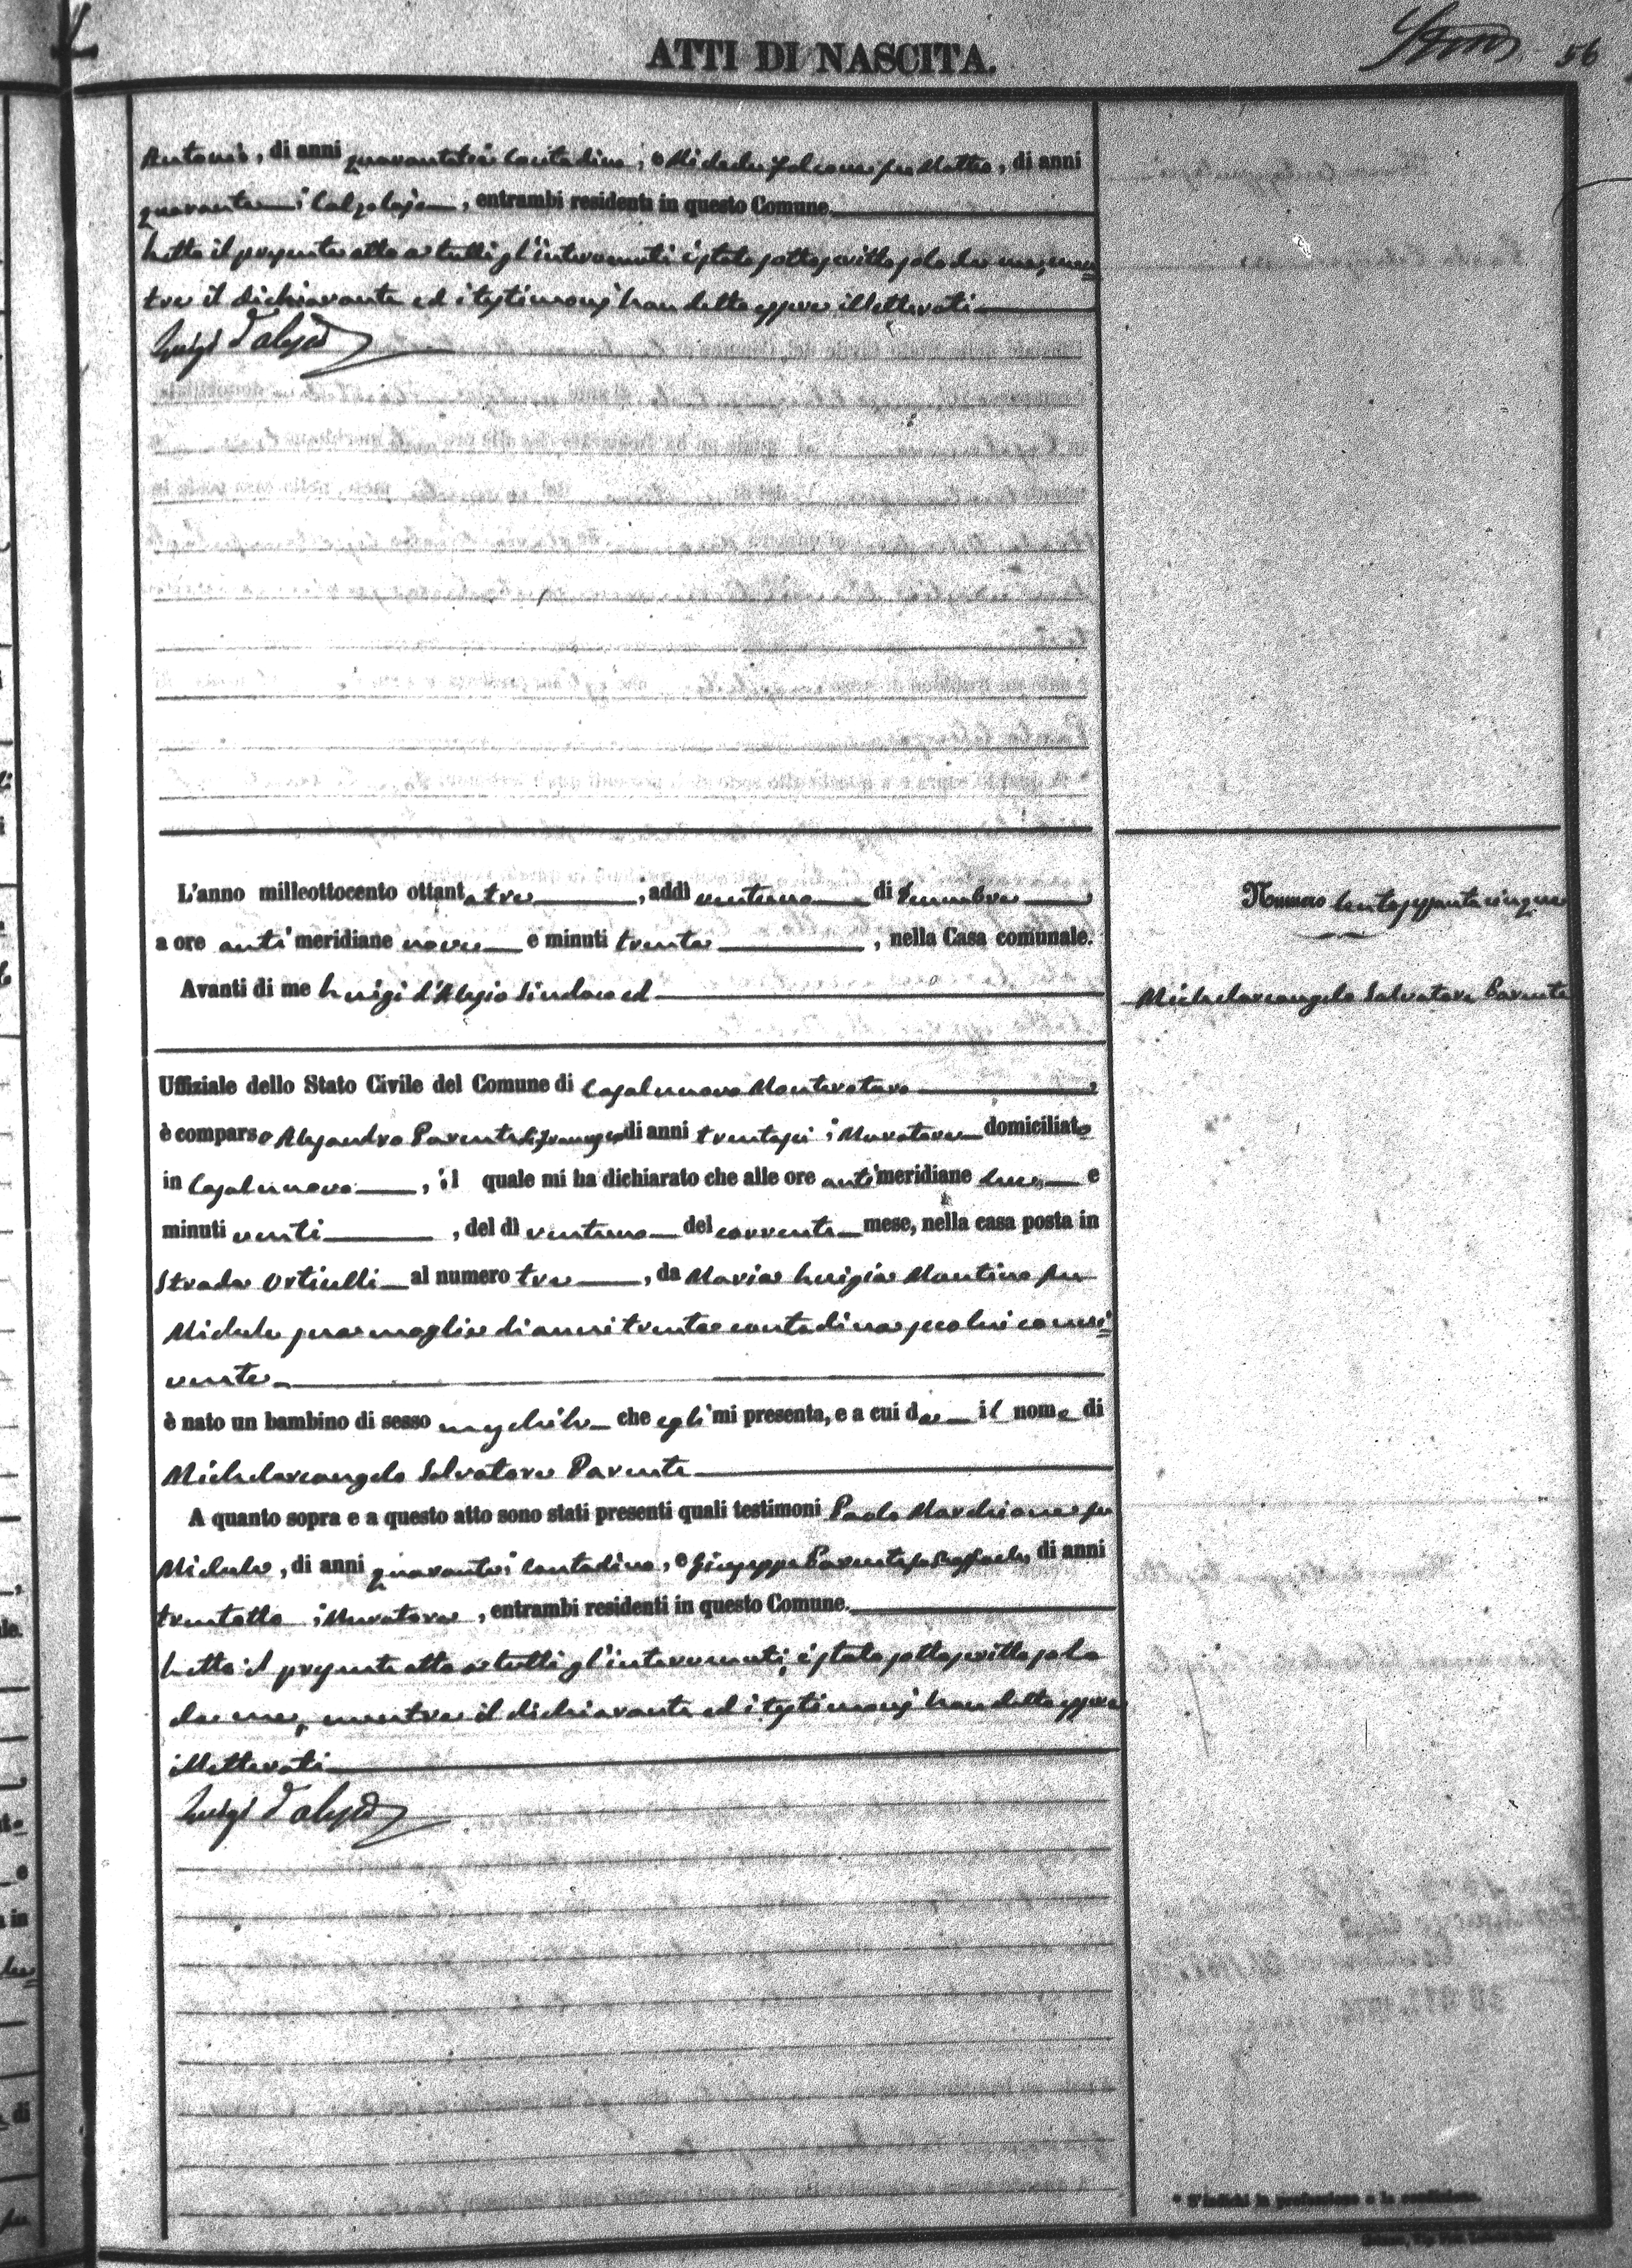 ATTI DI NASCITA.
56
Antonio, di anni quarantatrè contadino, e Michele Falcone fu Matteo, di anni
quaranta calzolajo, entrambi residenti in questo Comune.
Letto il presente atto a tutti gl'intervenuti è stato sottoscritto solo da me, men=
tre il dichiarante ed i testimonj han detto essere illetterati
Luigi d'Alesio
L'anno milleottocento ottantatre, addì ventuno di
a ore anti meridiane nove e minuti trenta, nella Casa comunale.
Numero Centosessantacinque
Avanti di me Luigi d'Alesio Sindaco ed
Michelarcangelo Salvatore Parente
Uffiziale dello Stato Civile del Comune di Casalnuovo Monterotaro
è comparso Alesandro Parente di anni trentasei Muratore domiciliato
in Casalnuovo, il quale mi ha dichiarato che alle ore anti meridiane e
minuti venti, del dì ventuno del corrente mese, nella casa posta in
Strada Orticelli al numero tre, da Maria Luigia Mantino fu
Michele sua moglie di anni trenta contadina seco lui convi=
vente
è nato un bambino di sesso maschile che egli mi presenta, e a cui da il nome di
Michelarcangelo Salvatore Parente
A quanto sopra e a questo atto sono stati presenti quali testimoni Paolo Marchione fu
Michele, di anni quaranta contadino, e Giuseppe Parente fu Raffaele, di anni
trentotto Muratore, entrambi residenti in questo Comune.
Letto il presente atto a tutti gl'intervenuti, è stato sottoscritto solo
da me, mentre il dichiarante ed i testimonj han detto essere
illetterati
Luigi d'Alesio
* S'indichi la professione o la condizione.